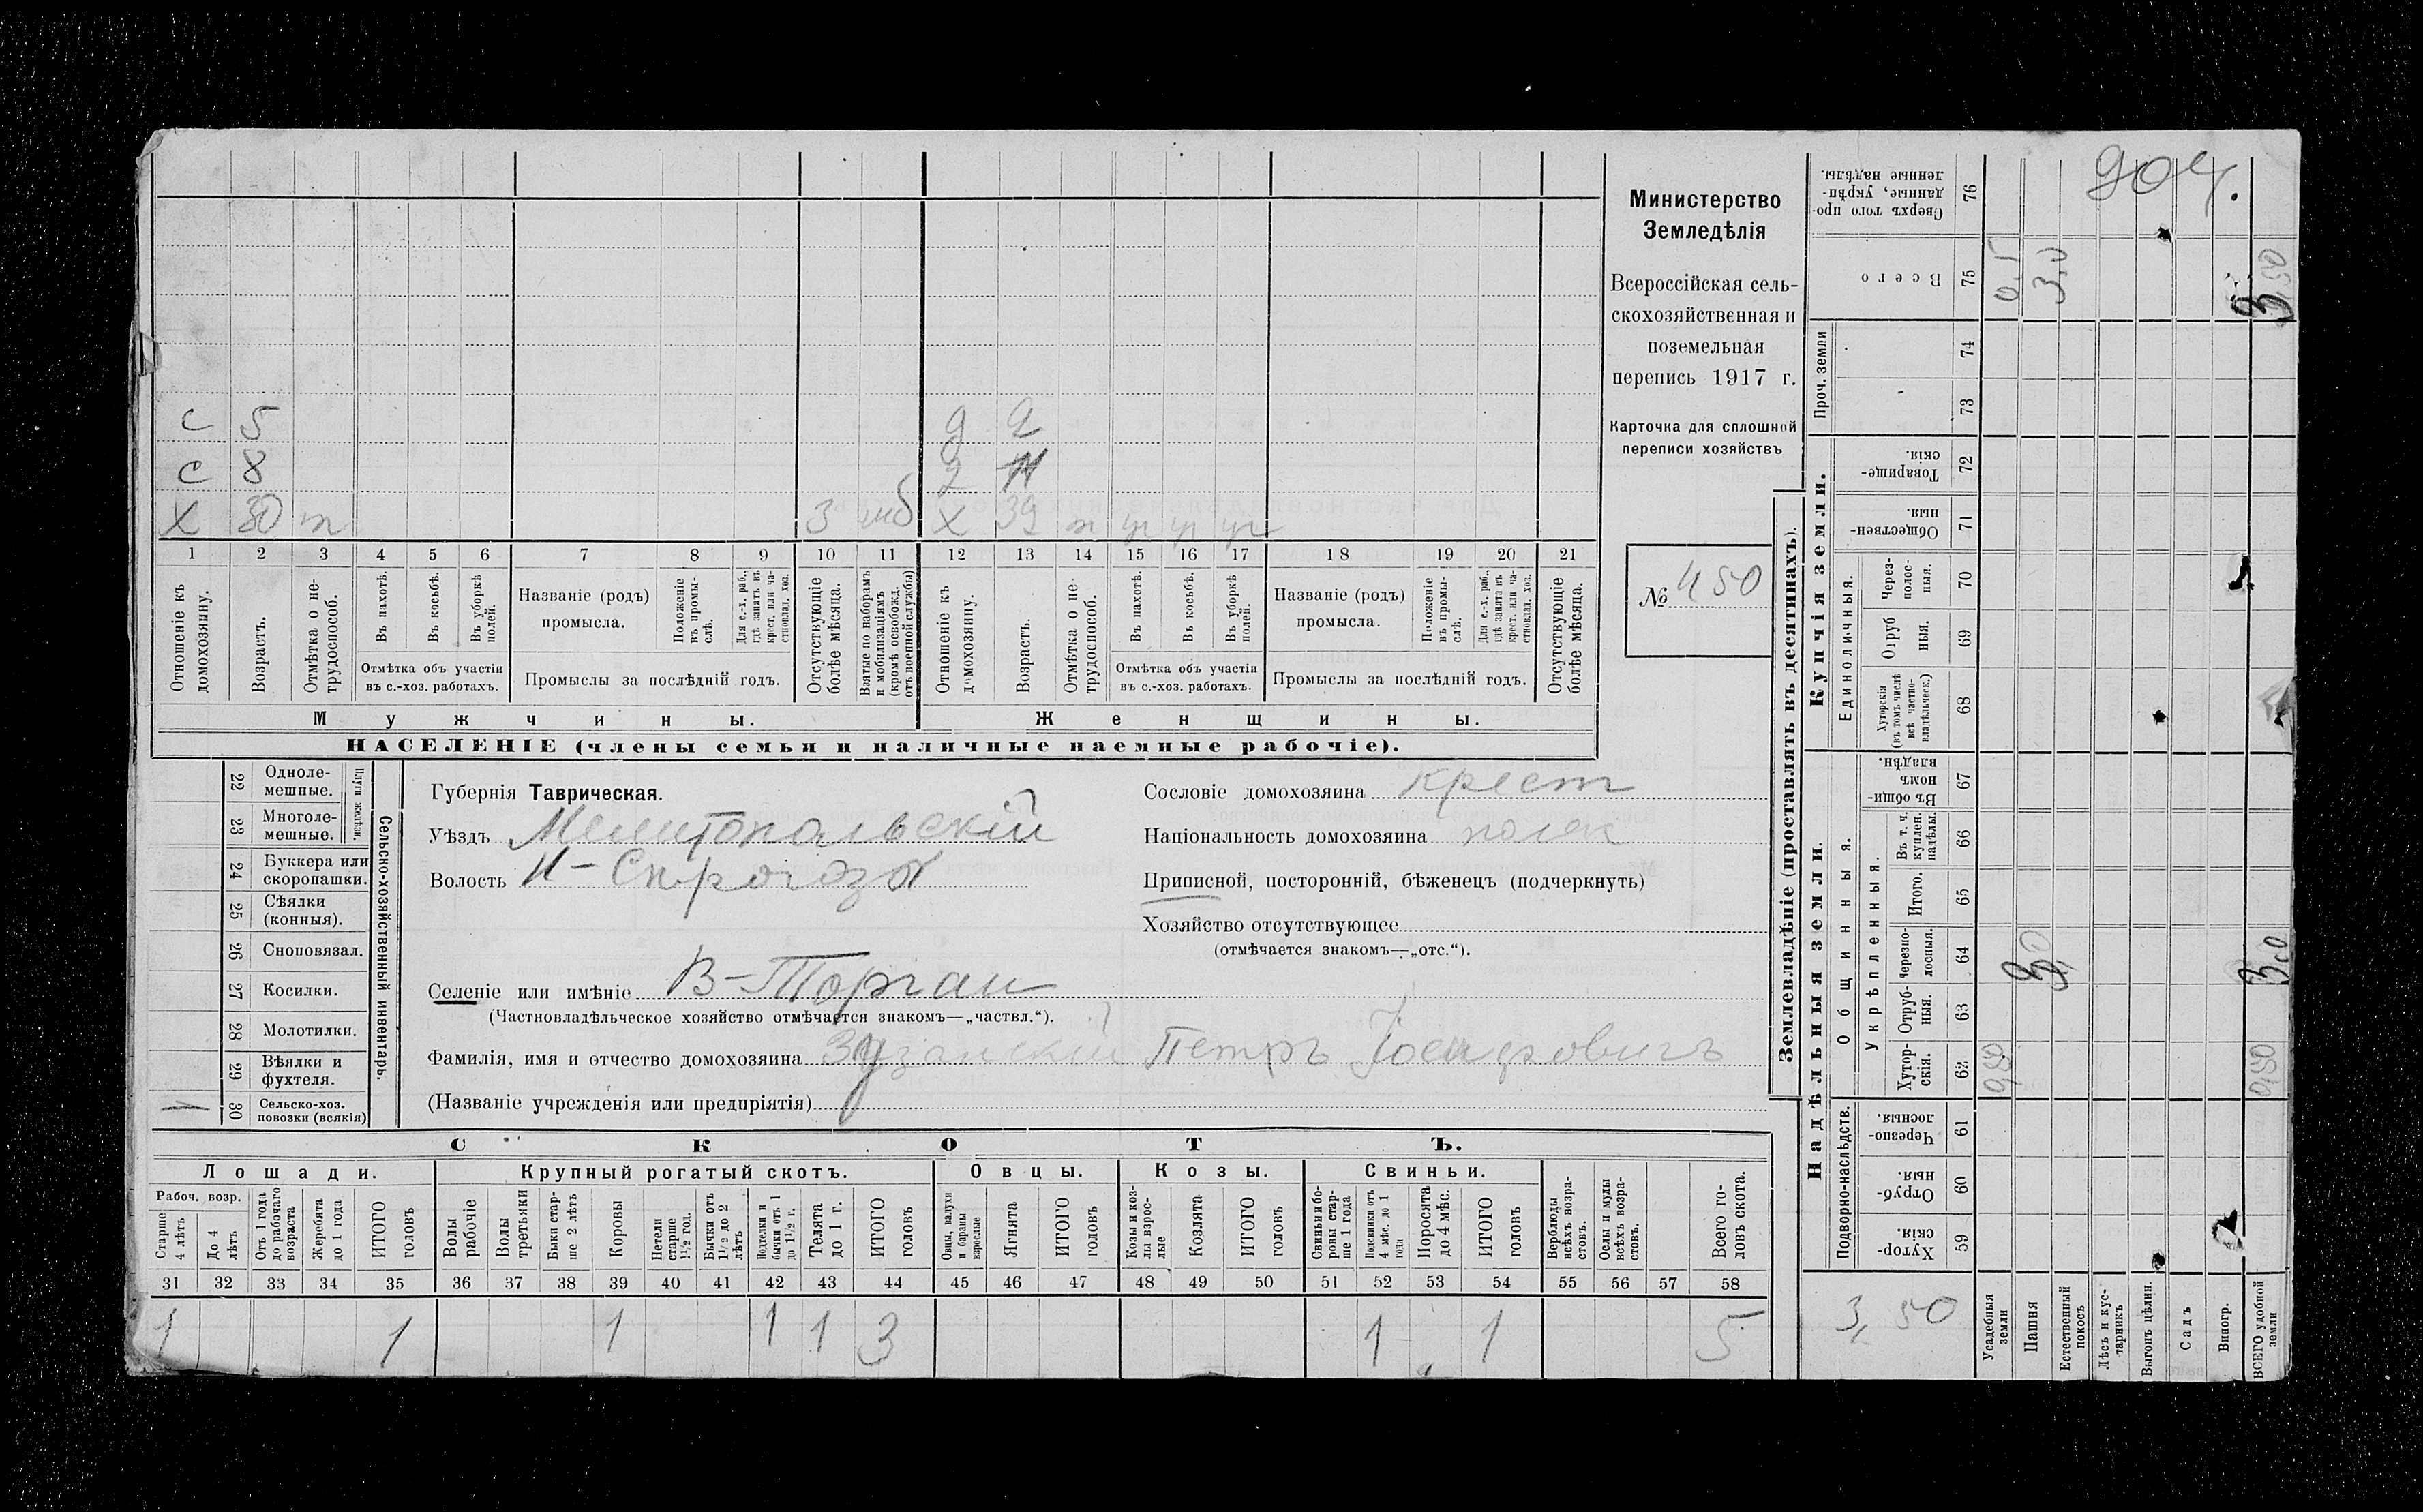 с 5 д 2
с 8
х 30 т 3 моб х 39
1 2 3 4 5 6 7 8 9 10 11 12 13 14 15 16 17 18 19 20 21
Отношеніе къ домохозяину.
Возрастъ.
Отмѣтка о не-
трудоспособ.
Въ пахотѣ.
Въ косьбѣ.
Въ уборкѣ
полей.
Отмѣтка объ участіи
въ с.-хоз. работахъ.
Названіе (родъ)
промысла.
Положеніе
въ промы-
слѣ.
Для с.-х. раб.,
гдѣ занятъ въ
крест. или ча-
стновлад. хоз.
Промыслы за послѣдній годъ.
Отсутствующіе
болѣе мѣсяца.
Взятые по наборамъ
и мобилизаціямъ
(кромѣ освобожд.
отъ военной службы)
Отношеніе къ
домохозяину.
Возрастъ.
Отмѣтка о не-
трудоспособ.
Въ пахотѣ.
Въ косьбѣ.
Въ уборкѣ
полей.
Отмѣтка объ участіи
въ с.-хоз. работахъ.
Названіе (родъ)
промысла.
Положеніе
въ промы-
слѣ.
Для с.-х. раб.,
гдѣ занята въ
крест. или ча-
стновлад. хоз.
Промыслы за послѣдній годъ.
Отсутствующіе
болѣе мѣсяца.
Мужчины.
Женщины.
НАСЕЛЕНІЕ (члены семьи и наличные наемные рабочіе).
Министерство
Земледѣлія
Всероссійская сель-
скохозяйственная и
поземельная
перепись 1917 г.
Карточка для сплошной
переписи хозяйствъ
№ 450
22 Одноле-
мешные.
23 Многоле-
мешные.
Плуги желѣзн.
24 Буккера или
скоропашки.
25 Сѣялки
(конныя).
26 Сноповязал.
27 Косилки.
28 Молотилки.
29 Вѣялки и
фухтеля.
1 30 Сельско-хоз.
повозки (всякія)
Сельско-хозяйственный инвентарь.
Губернія Таврическая.
Уѣздъ Мелитопольскій
Волость Н-Сѣрогозы
Селеніе или имѣніе В-Торгаи
(Частновладѣльческое хозяйство отмѣчается знакомъ—„частвл.“).
Фамилія, имя и отчество домохозяина Петръ Іосифовичъ
(Названіе учрежденія или предпріятія)
Сословіе домохозяина крест
Національность домохозяина поляк
Приписной, посторонній, бѣженецъ (подчеркнуть)
Хозяйство отсутствующее
(отмѣчается знакомъ—„отс.“).
СКОТЪ.
Лошади.
Рабоч. возр.
Старше
4 лѣтъ
До 4
лѣтъ
Отъ 1 года
до рабочаго
возраста
Жеребята
до 1 года
ИТОГО
головъ
Крупный рогатый скотъ.
Волы
рабочіе
Волы
третьяки
Быки стар-
ше 2 лѣтъ
Коровы
Нетели
старше
1½ год.
Бычки отъ
1½ до 2
лѣтъ
Подтелки и
бычки отъ 1
до 1½ г.
Телята
до 1 г.
ИТОГО
головъ
Овцы.
Овцы, валухи
и бараны
взрослые
Ягнята
ИТОГО
головъ
Козы.
Козы и коз-
лы взрос-
лые
Козлята
ИТОГО
головъ
Свиньи.
Свиньи и бо-
ровы стар-
ше 1 года
Подсвинки отъ
4 мѣс. до 1
года
Поросята
до 4 мѣс.
ИТОГО
головъ
Верблюды
всѣхъ возра-
стовъ.
Ослы и мулы
всѣхъ возра-
стовъ.
Всего го-
ловъ скота.
31 32 33 34 35 36 37 38 39 40 41 42 43 44 45 46 47 48 49 50 51 52 53 54 55 56 57 58
1 1 1 1 1 3 1 1 5
Землевладѣніе (проставлять въ десятинахъ).
Надѣльныя земли.
Подворно-наслѣдств.
Хутор-
скія. 59
Отруб-
ныя. 60
Черезпо-
лосныя. 61
Общинныя.
Укрѣпленныя.
Хутор-
скія. 62
Отруб-
ныя. 63
Черезпо-
лосныя. 64
Итого. 65
Въ т. ч.
куплен.
надѣлы. 66
Въ общи-
номъ
владѣн. 67
Купчія земли.
Единоличныя.
Хуторскія
(въ томъ числѣ
всѣ частно-
владѣльческ.) 68
Отруб
ныя. 69
Через-
полос-
ныя. 70
Обществен-
ныя. 71
Товарище-
скія. 72
Проч. земли
73
74
Всего 75
Сверхъ того про-
данные, укрѣп-
ленные надѣлы. 76
3,50
0,50 0,50
3,0
0,5
3,0
3,50
Усадебныя
земли
Пашня
Естественный
покосъ
Лѣсъ и кус-
тарникъ
Выгонъ цѣлин.
Садъ
Виногр.
ВСЕГО удобной
земли